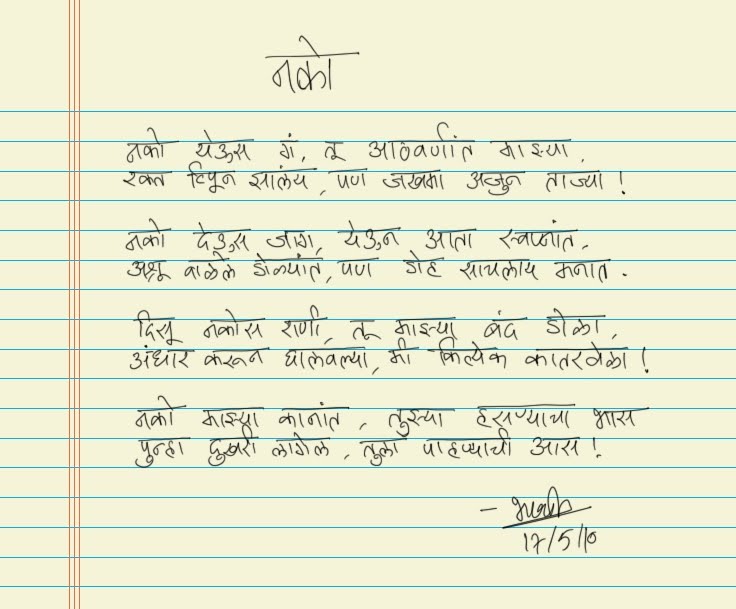 नको
नको येऊस गं, तू आठवणींत माझ्या,
रक्त टिपून झालंय, पण जखमा अजुन ताज्या !
नको देऊस जाग, येऊन आता स्वप्नांत,
अश्रू वाळले डोळ्यांत, पण डोह साचलाय मनात.
दिसू नकोस राणी, तू माझ्या बंद डोळा,
अंधार करून घालवल्या, मी कित्येक कातरवेळा !
नको माझ्या कानांत, तुझ्या हसण्याचा भास
पुन्हा दुखरी लागेल, तुला पाहण्याची आस !
17/5/10